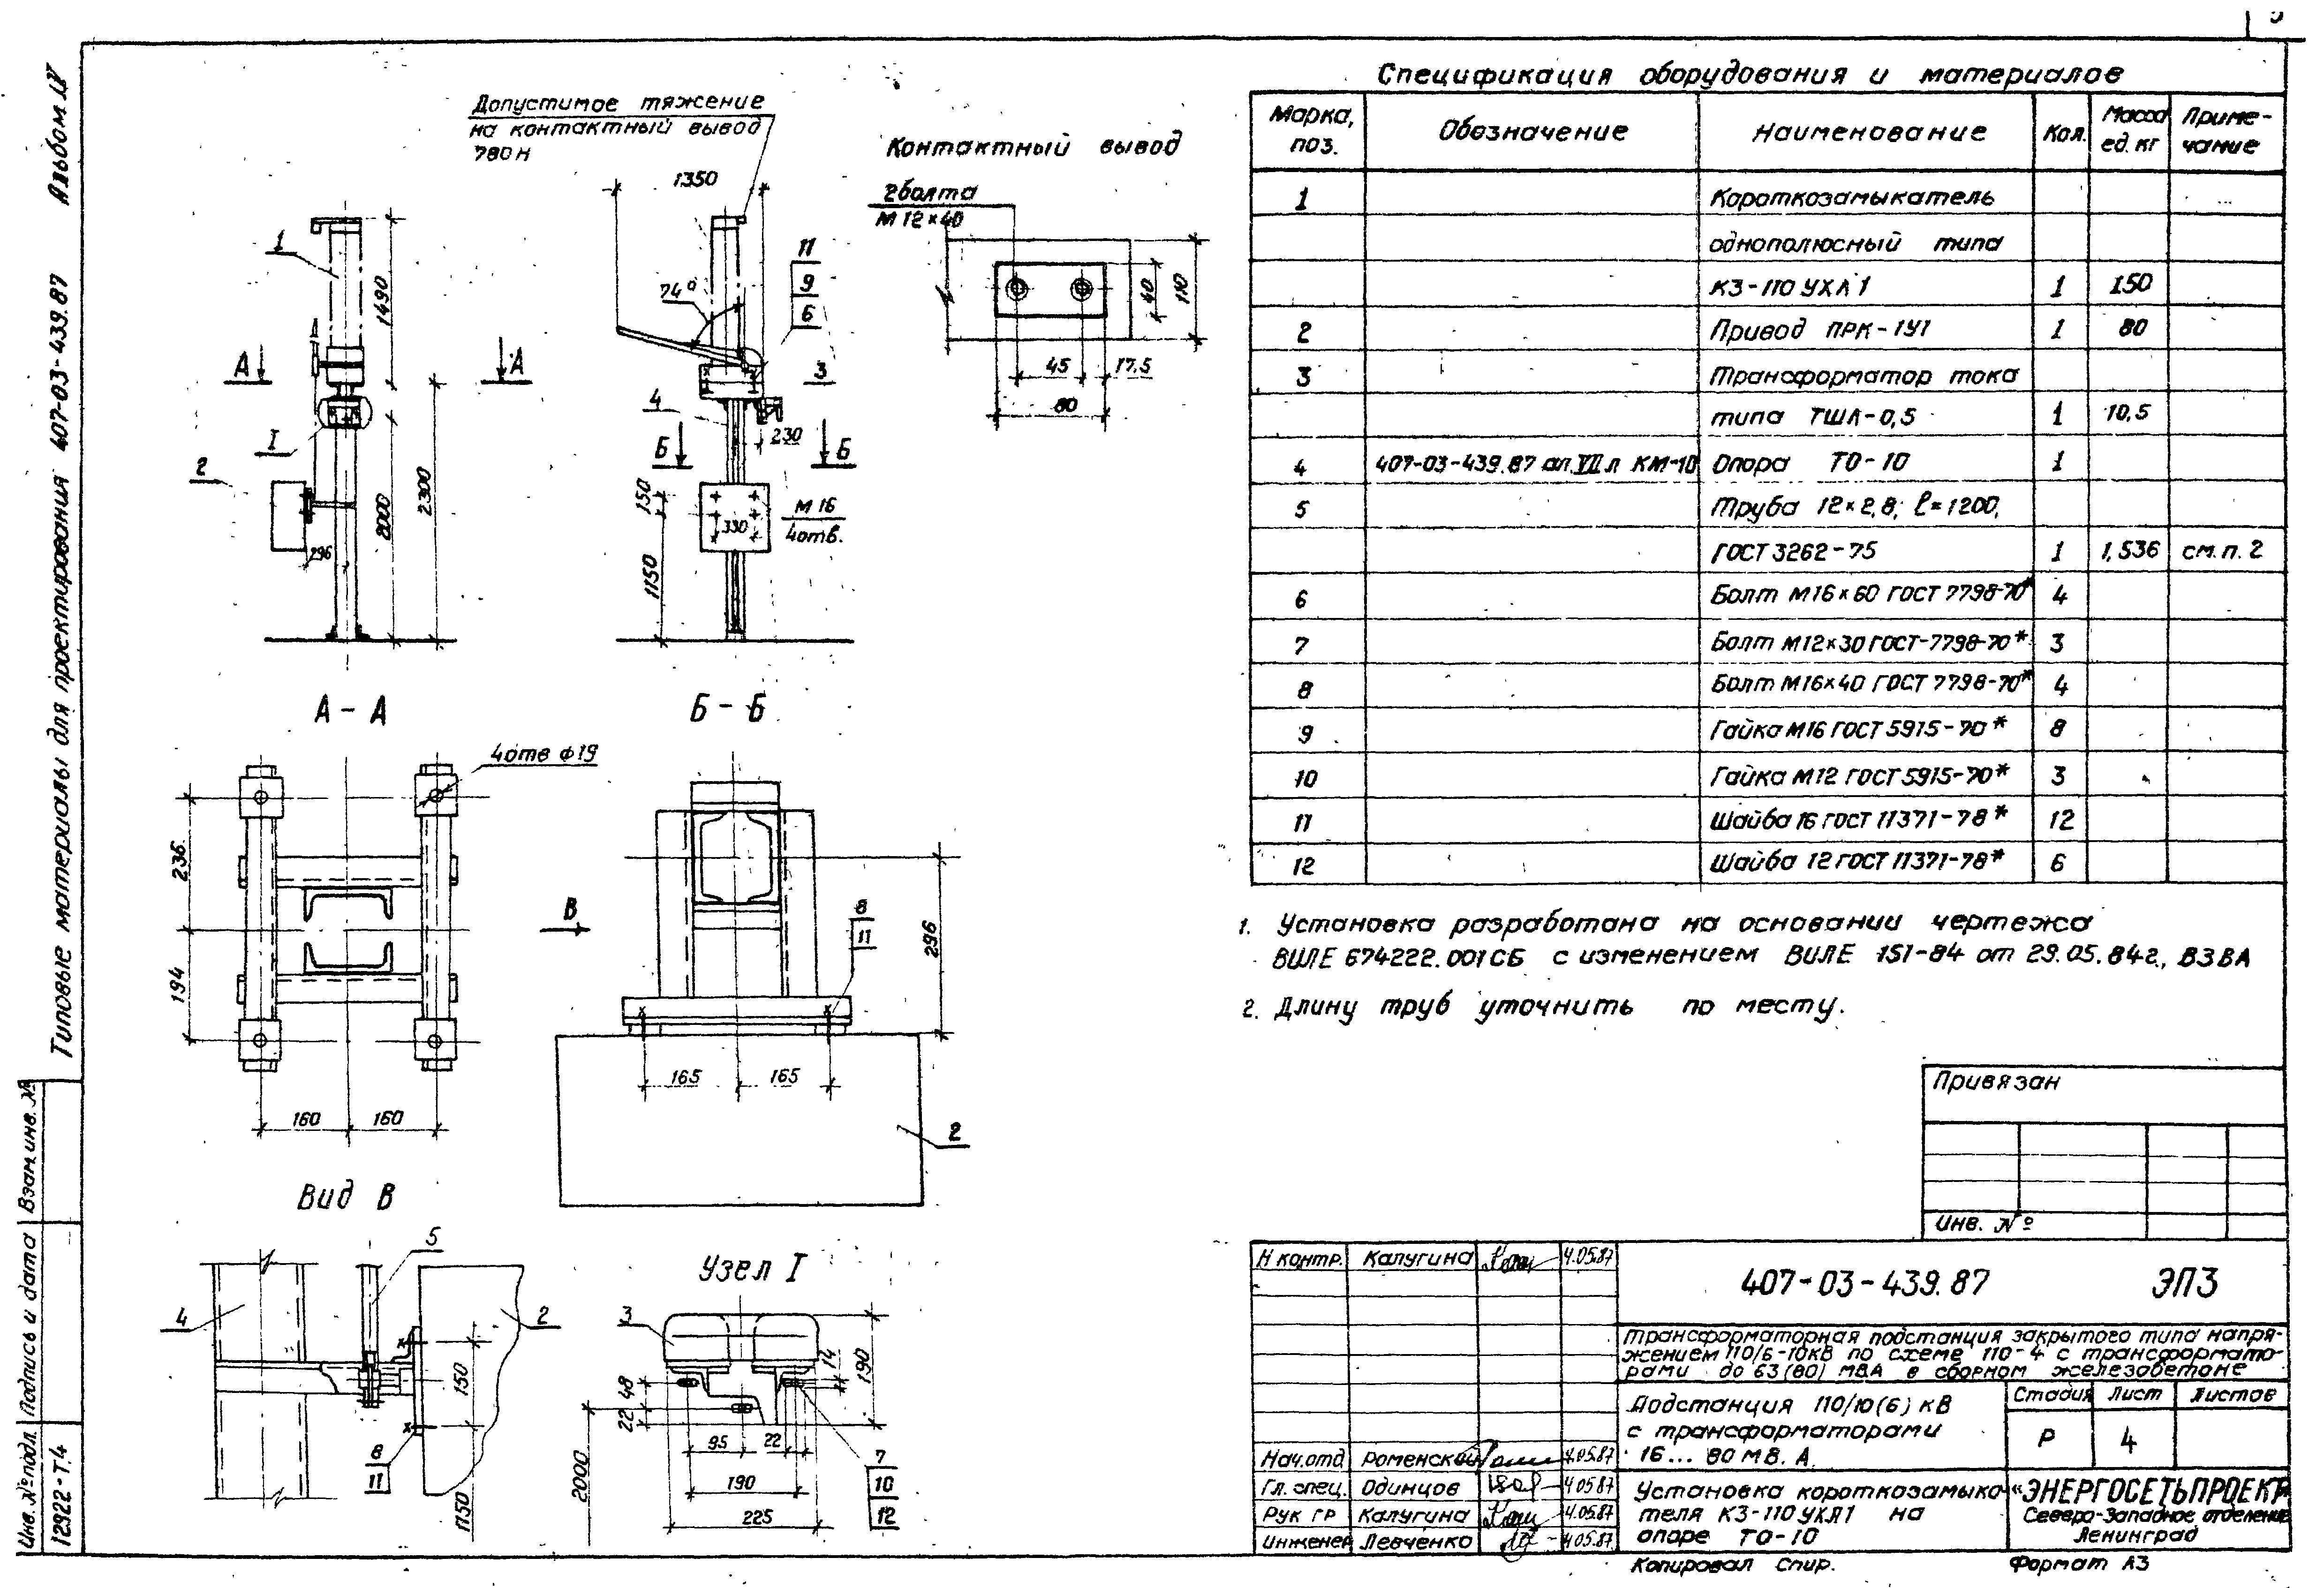 5
Альбом IV
Типовые материалы для проектирования 407-03-439.87
Взам.инв.№
Подпись и дата
Инв.№подл.
12922-Т.4
Допустимое тяжение
на контактный вывод
780 Н
1350
1
1490
А
А
I
2
2000
2300
296
74°
11
9
6
3
4
230
Б
Б
150
330
М 16
4отв.
1150
Контактный вывод
2болта
М 12×40
40
110
45
17,5
80
А - А
4отв ф19
236
194
160
160
Б - Б
В
8
11
296
165
165
2
Вид В
5
4
2
150
1150
8
11
Узел I
3
14
190
48
22
95
22
2000
190
225
7
10
12
Спецификация оборудования и материалов
Марка, поз.
Обозначение
Наименование
Кол.
Масса ед. кг
Приме-чание
1 Короткозамыкатель
однополюсный типа
КЗ-110 УХЛ1 1 150
2 Привод ПРК-1У1 1 80
3 Трансформатор тока
типа ТШЛ-0,5 1 10,5
4 407-03-439.87 ал.VII л КМ-10 Опора ТО-10 1
5 Труба 12×2,8; ℓ=1200,
ГОСТ 3262-75 1 1,536 см. п. 2
6 Болт М16×60 ГОСТ 7798-70* 4
7 Болт М12×30 ГОСТ-7798-70* 3
8 Болт М16×40 ГОСТ 7798-70* 4
9 Гайка М16 ГОСТ 5915-70* 8
10 Гайка М12 ГОСТ 5915-70* 3
11 Шайба 16 ГОСТ 11371-78* 12
12 Шайба 12 ГОСТ 11371-78* 6
1. Установка разработана на основании чертежа
ВИЛЕ 674222.001СБ с изменением ВИЛЕ 151-84 от 29.05.84г., ВЗВА
2. Длину труб уточнить по месту.
Привязан
Инв. №
Н контр. Калугина 4.05.87
407-03-439.87 ЭП3
Трансформаторная подстанция закрытого типа напря-
жением 110/6-10кВ по схеме 110-4 с трансформато-
рами до 63(80) МВА в сборном железобетоне
Подстанция 110/10(6) кВ
с трансформаторами
16... 80 МВ. А.
Стадия Лист Листов
Р 4
Нач.отд Роменский 4.05.87
Гл. спец. Одинцов 4 05 87
Рук гр Калугина 4.05.87
Инженер Левченко 4.05.87
Установка короткозамыка-
теля КЗ-110 УХЛ1 на
опоре ТО-10
«ЭНЕРГОСЕТЬПРОЕКТ»
Северо-Западное отделение
Ленинград
Копировал Спир. Формат А3